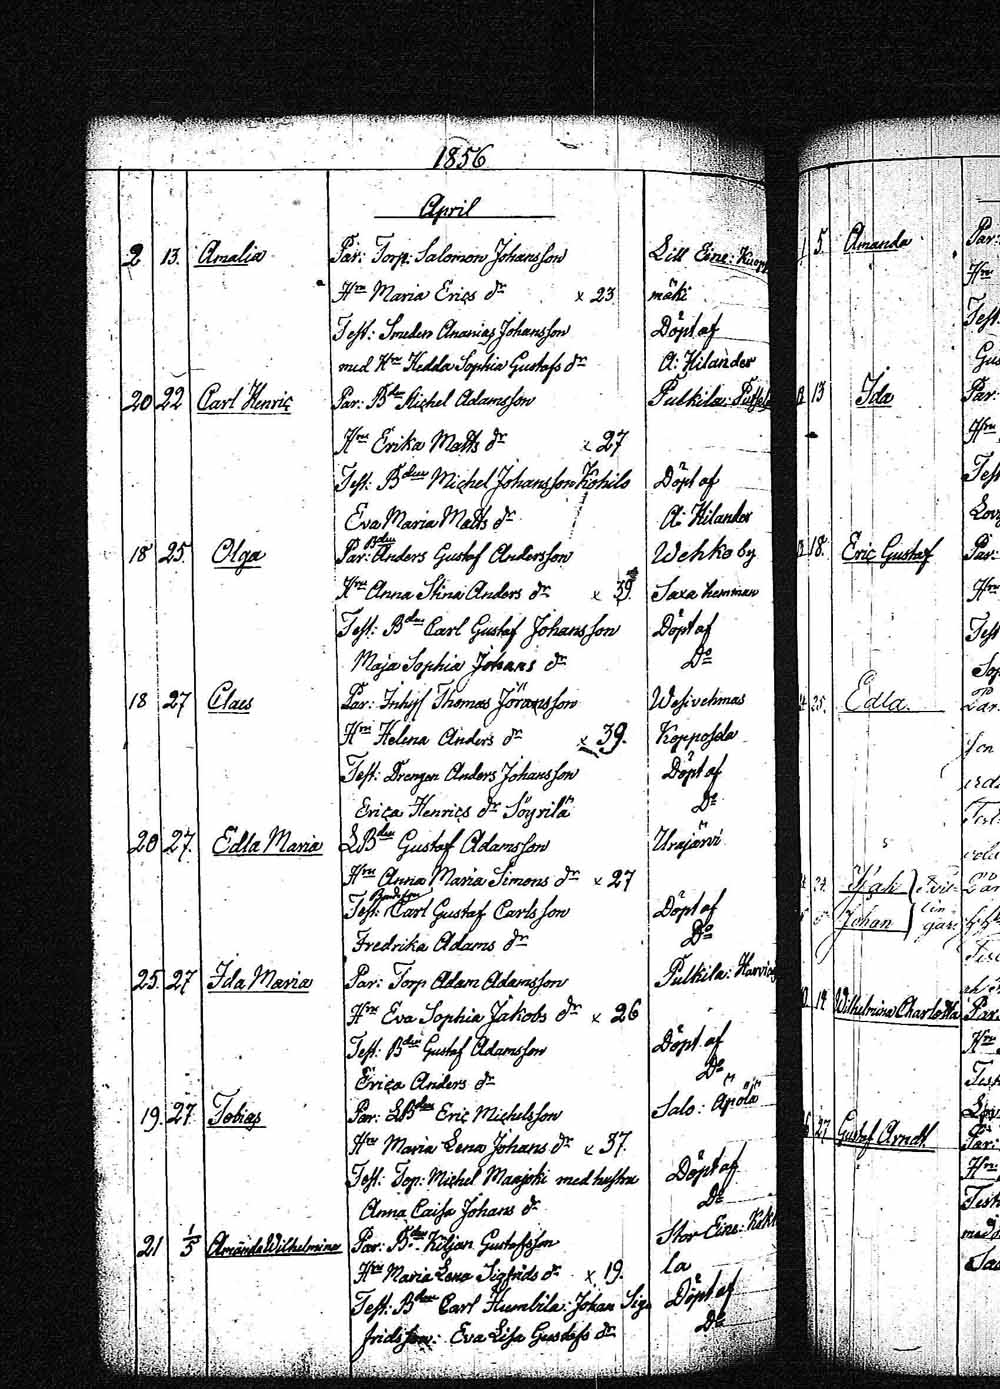 1856
April
2 13. Amalia Par: Torp: Salomon Johansson Lill Eine: Kuop
Hru Maria Erics dr x 23 mäki
Test: Smeden Ananias Johansson Döpt af
med Hru Hedda Sophia Gustafs dr A: Hilander
20 22 Carl Henric Par: Bdn Michel Adamsson Pulkila:
Hru Erika Matts dr x 27
Test: Bden Michel Johansson Köhilo Döpt af
Eva Maria Matts dr A: Hilander
18 25. Olga Par: Bdn Anders Gustaf Andersson Wehkoby
Hru Anna Stina Anders dr x 39. Saxa hemman
Test: Bden Carl Gustaf Johansson Döpt af
Maja Sophia Johans dr Do
18 27 Claes Par: Inhys Thomas Jöransson Wesivehmas
Hru Helena Anders dr x 39. Kopposela
Test: Drengen Anders Johansson Döpt af
Erica Henrics dr Söyrilä Do
20 27. Edla Maria LBden Gustaf Adamsson Urajärvi
Hru Anna Maria Simons dr x 27
Test: Carl Gustaf Carlsson Döpt af
Fredrika Adams dr Do
25. 27 Ida Maria Par: Torp Adam Adamsson Pulkila:
Hru Eva Sophia Jakobs dr x 26
Test: Bden Gustaf Adamsson Döpt af
Erica Anders dr Do
19. 27. Tobias Par: LBden Eric Michelsson Salo: Äpölä
Hru Maria Lena Johans dr x 37.
Test: Top: Michel Maajoki med hustru Döpt af
Anna Caisa Johans dr Do
21 1/5 Amanda Wilhelmina Par: Bden Kiljan Gustafsson Stor Eine: Kekk
Hru Maria Lena Sigfrids dr x 19. la
Test: Bden Carl Humbila: Johan Sig Döpt af
fridsson: Eva Lisa Gustafs dr Do
5. Amanda Par:
Hru
Test:
Gus
13 Ida Par:
Hru
Test
Lov
18. Eric Gustaf Par:
Hru
Test
Sop
25. Edla.
son
Test
24. Isak Tvil-
Johan lin
gar
19. Wilhelmina Charlotta Par:
Hru
Test
27 Gustaf Arndt. Par:
Hru
Test
med